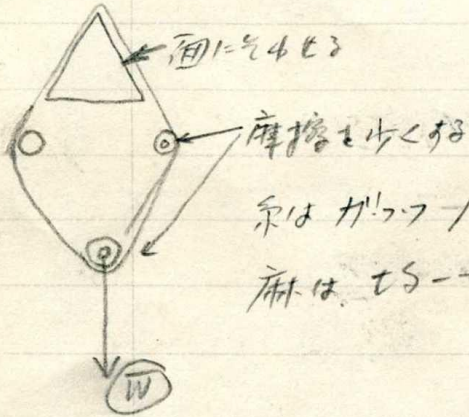 面にそわせる
摩擦を少くする
糸は ガッツー
麻は
W